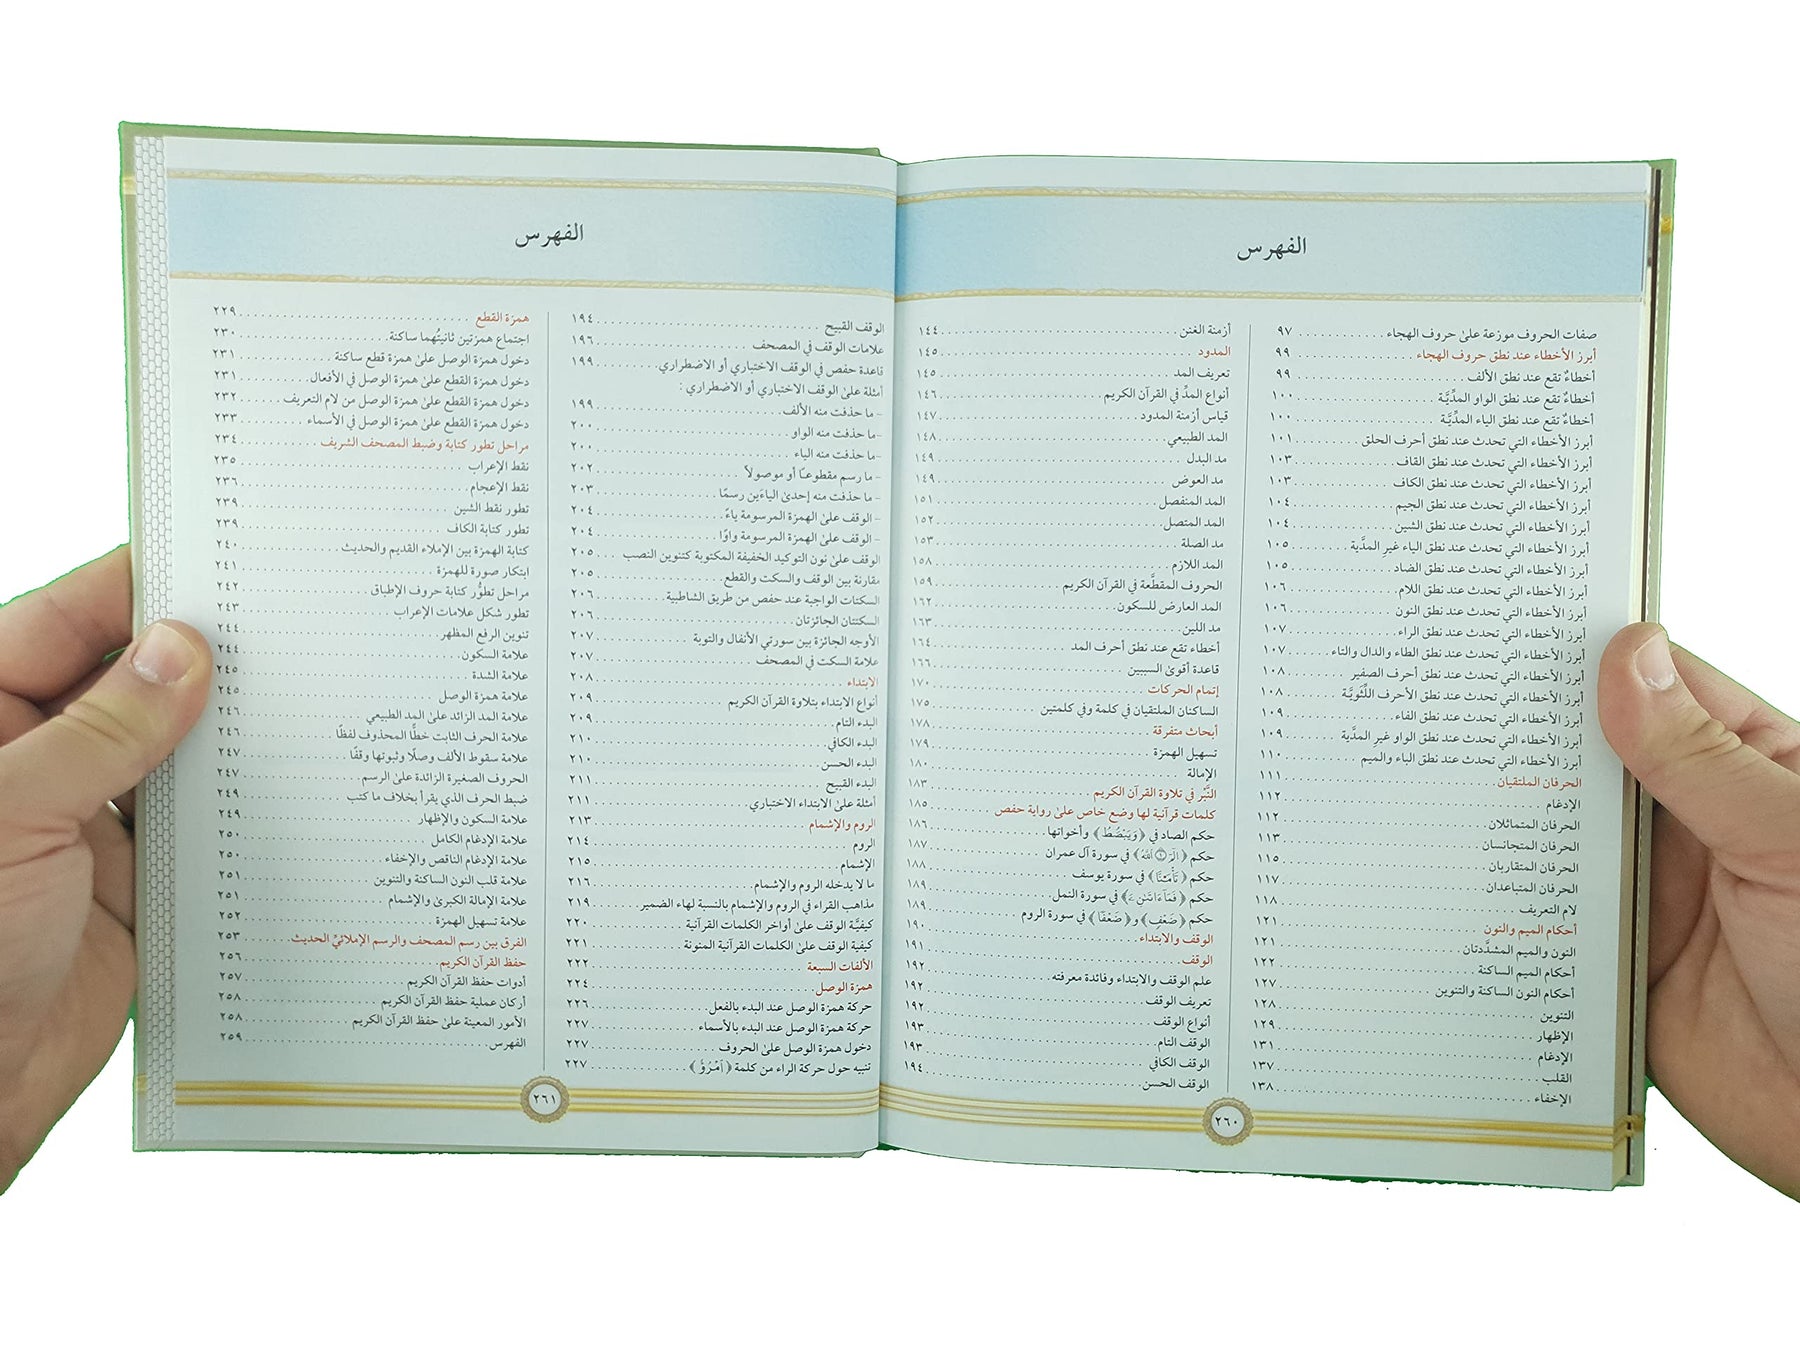 الفهرس
صفات الحروف موزعة على حروف الهجاء ٩٧
أبرز الأخطاء عند نطق حروف الهجاء ٩٩
أخطاءٌ تقع عند نطق الألف ٩٩
أخطاءٌ تقع عند نطق الواو المدِّيَّة ١٠٠
أخطاءٌ تقع عند نطق الياء المدِّيَّة ١٠٠
أبرز الأخطاء التي تحدث عند نطق أحرف الحلق ١٠١
أبرز الأخطاء التي تحدث عند نطق القاف ١٠٣
أبرز الأخطاء التي تحدث عند نطق الكاف ١٠٣
أبرز الأخطاء التي تحدث عند نطق الجيم ١٠٤
أبرز الأخطاء التي تحدث عند نطق الشين ١٠٤
أبرز الأخطاء التي تحدث عند نطق الياء غيرِ المدِّية ١٠٥
أبرز الأخطاء التي تحدث عند نطق الضاد ١٠٥
أبرز الأخطاء التي تحدث عند نطق اللام ١٠٦
أبرز الأخطاء التي تحدث عند نطق النون ١٠٦
أبرز الأخطاء التي تحدث عند نطق الراء ١٠٧
أبرز الأخطاء التي تحدث عند نطق الطاء والدال والتاء ١٠٧
أبرز الأخطاء التي تحدث عند نطق أحرف الصفير ١٠٨
أبرز الأخطاء التي تحدث عند نطق الأحرف اللِّثَويَّة ١٠٨
أبرز الأخطاء التي تحدث عند نطق الفاء ١٠٩
أبرز الأخطاء التي تحدث عند نطق الواو غيرِ المدِّية ١٠٩
أبرز الأخطاء التي تحدث عند نطق الباء والميم ١١٠
الحرفان الملتقيان ١١١
الإدغام ١١٢
الحرفان المتماثلان ١١٢
الحرفان المتجانسان ١١٣
الحرفان المتقاربان ١١٥
الحرفان المتباعدان ١١٧
لام التعريف ١١٨
أحكام الميم والنون ١٢١
النون والميم المشدَّدتان ١٢١
أحكام الميم الساكنة ١٢٢
أحكام النون الساكنة والتنوين ١٢٧
التنوين ١٢٨
الإظهار ١٢٩
الإدغام ١٣١
القلب ١٣٧
الإخفاء ١٣٨
أزمنة الغنن ١٤٤
المدود ١٤٥
تعريف المد ١٤٥
أنواع المدِّ في القرآن الكريم ١٤٦
قياس أزمنة المدود ١٤٧
المد الطبيعي ١٤٨
مد البدل ١٤٩
مد العوض ١٤٩
المد المنفصل ١٥١
المد المتصل ١٥٢
مد الصلة ١٥٣
المد اللازم ١٥٨
الحروف المقطَّعة في القرآن الكريم ١٥٩
المد العارض للسكون ١٦٢
مد اللين ١٦٣
أخطاء تقع عند نطق أحرف المد ١٦٤
قاعدة أقوى السببين ١٦٦
إتمام الحركات ١٧٠
الساكنان الملتقيان في كلمة وفي كلمتين ١٧٥
أبحاث متفرقة ١٧٨
تسهيل الهمزة ١٧٩
الإمالة ١٨٠
النَّبْر في تلاوة القرآن الكريم ١٨٣
كلمات قرآنية لها وضع خاص على رواية حفص ١٨٥
حكم الصاد في ﴿وَيَبْصُۜطُ﴾ وأخواتها ١٨٦
حكم ﴿الٓمٓ ۝ اللَّهُ﴾ في سورة آل عمران ١٨٧
حكم ﴿تَأْمَ۫نَّا﴾ في سورة يوسف ١٨٨
حكم ﴿فَمَآ ءَاتَىٰنِۦَ﴾ في سورة النمل ١٨٩
حكم ﴿ضَعْفٍ﴾ و﴿ضَعْفًا﴾ في سورة الروم ١٨٩
الوقف والابتداء ١٩٠
الوقف ١٩١
علم الوقف والابتداء وفائدة معرفته ١٩٢
تعريف الوقف ١٩٢
أنواع الوقف ١٩٢
الوقف التام ١٩٣
الوقف الكافي ١٩٣
الوقف الحسن ١٩٤
٢٦٠
الفهرس
الوقف القبيح ١٩٤
علامات الوقف في المصحف ١٩٦
قاعدة حفص في الوقف الاختباري أو الاضطراري ١٩٩
أمثلة على الوقف الاختباري أو الاضطراري :
- ما حذفت منه الألف ١٩٩
- ما حذفت منه الواو ٢٠٠
- ما حذفت منه الياء ٢٠٠
- ما رسم مقطوعًا أو موصولاً ٢٠٢
- ما حذفت منه إحدى الياءَين رسمًا ٢٠٣
- الوقف على الهمزة المرسومة ياءً ٢٠٤
- الوقف على الهمزة المرسومة واوًا ٢٠٤
الوقف على نون التوكيد الخفيفة المكتوبة كتنوين النصب ٢٠٥
مقارنة بين الوقف والسكت والقطع ٢٠٥
السكتات الواجبة عند حفص من طريق الشاطبية ٢٠٦
السكتتان الجائزتان ٢٠٦
الأوجه الجائزة بين سورتي الأنفال والتوبة ٢٠٧
علامة السكت في المصحف ٢٠٧
الابتداء ٢٠٨
أنواع الابتداء بتلاوة القرآن الكريم ٢٠٩
البدء التام ٢٠٩
البدء الكافي ٢١٠
البدء الحسن ٢١٠
البدء القبيح ٢١١
أمثلة على الابتداء الاختباري ٢١١
الروم والإشمام ٢١٣
الروم ٢١٤
الإشمام ٢١٥
ما لا يدخله الروم والإشمام ٢١٦
مذاهب القراء في الروم والإشمام بالنسبة لهاء الضمير ٢١٩
كيفيَّة الوقف على أواخر الكلمات القرآنية ٢٢٠
كيفية الوقف على الكلمات القرآنية المنونة ٢٢١
الألفات السبعة ٢٢٢
همزة الوصل ٢٢٤
حركة همزة الوصل عند البدء بالفعل ٢٢٦
حركة همزة الوصل عند البدء بالأسماء ٢٢٧
دخول همزة الوصل على الحروف ٢٢٧
تنبيه حول حركة الراء من كلمة ﴿امْرُؤٌ﴾ ٢٢٧
همزة القطع ٢٢٩
اجتماع همزتين ثانيتُهما ساكنة ٢٣٠
دخول همزة الوصل على همزة قطع ساكنة ٢٣١
دخول همزة القطع على همزة الوصل في الأفعال ٢٣١
دخول همزة القطع على همزة الوصل من لام التعريف ٢٣٢
دخول همزة القطع على همزة الوصل في الأسماء ٢٣٣
مراحل تطور كتابة وضبط المصحف الشريف ٢٣٤
نقط الإعراب ٢٣٥
نقط الإعجام ٢٣٦
تطور نقط الشين ٢٣٩
تطور كتابة الكاف ٢٣٩
كتابة الهمزة بين الإملاء القديم والحديث ٢٤٠
ابتكار صورة للهمزة ٢٤١
مراحل تطوُّر كتابة حروف الإطباق ٢٤٢
تطور شكل علامات الإعراب ٢٤٣
تنوين الرفع المظهر ٢٤٤
علامة السكون ٢٤٤
علامة الشدة ٢٤٥
علامة همزة الوصل ٢٤٥
علامة المد الزائد على المد الطبيعي ٢٤٦
علامة الحرف الثابت خطًّا المحذوف لفظًا ٢٤٦
علامة سقوط الألف وصلًا وثبوتها وقفًا ٢٤٧
الحروف الصغيرة الزائدة على الرسم ٢٤٧
ضبط الحرف الذي يقرأ بخلاف ما كتب ٢٤٩
علامة السكون والإظهار ٢٤٩
علامة الإدغام الكامل ٢٥٠
علامة الإدغام الناقص والإخفاء ٢٥٠
علامة قلب النون الساكنة والتنوين ٢٥١
علامة الإمالة الكبرى والإشمام ٢٥١
علامة تسهيل الهمزة ٢٥٢
الفرق بين رسم المصحف والرسم الإملائيِّ الحديث ٢٥٣
حفظ القرآن الكريم ٢٥٦
أدوات حفظ القرآن الكريم ٢٥٧
أركان عملية حفظ القرآن الكريم ٢٥٨
الأمور المعينة على حفظ القرآن الكريم ٢٥٨
الفهرس ٢٥٩
٢٦١